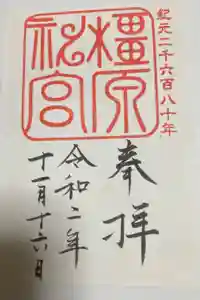 紀元二千六百八十年
橿原神宮
奉拝
令和二年
十一月十六日